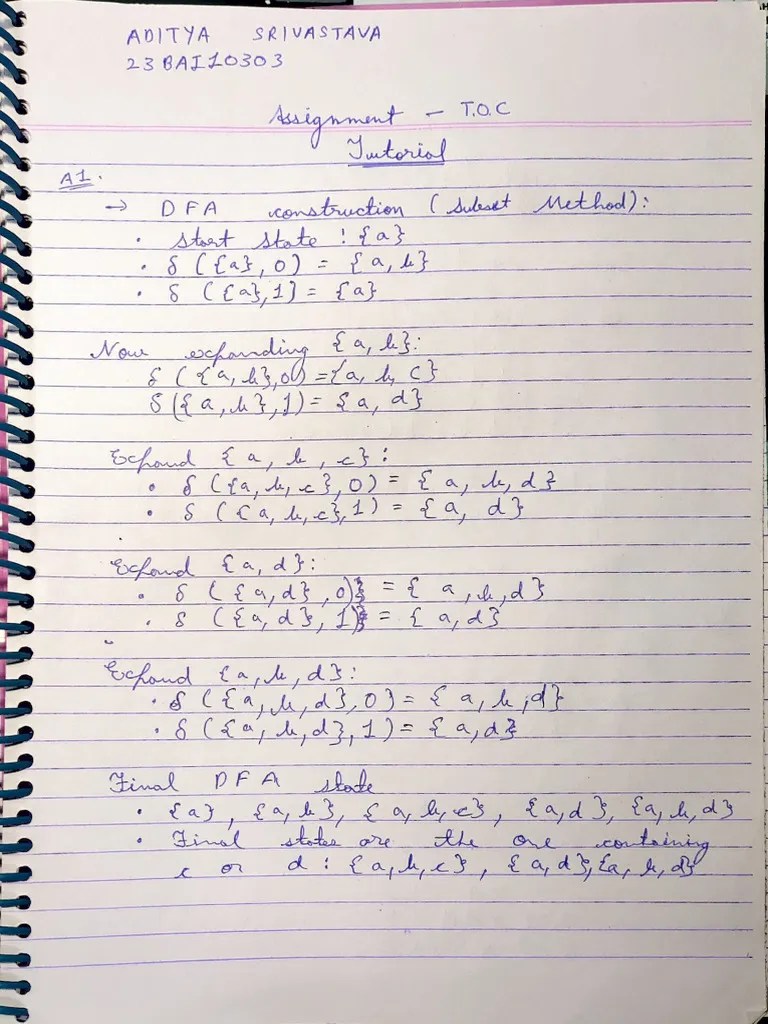 ADITYA SRIVASTAVA
23BAI10303
Assignment – T.O.C
Tutorial
A1.
→ DFA construction (Subset Method):
• Start State : {a}
• δ ({a}, 0) = {a, b}
• δ ({a}, 1) = {a}
Now expanding {a, b}:
δ ({a, b}, 0) = {a, b, c}
δ ({a, b}, 1) = {a, d}
Expand {a, b, c}:
• δ ({a, b, c}, 0) = {a, b, d}
• δ ({a, b, c}, 1) = {a, d}
Expand {a, d}:
• δ ({a, d}, 0) = {a, b, d}
• δ ({a, d}, 1) = {a, d}
Expand {a, b, d}:
• δ ({a, b, d}, 0) = {a, b, d}
• δ ({a, b, d}, 1) = {a, d}
Final DFA state
• {a}, {a, b}, {a, b, c}, {a, d}, {a, b, d}
• Final states are the one containing
c or d : {a, b, c}, {a, d}, {a, b, d}